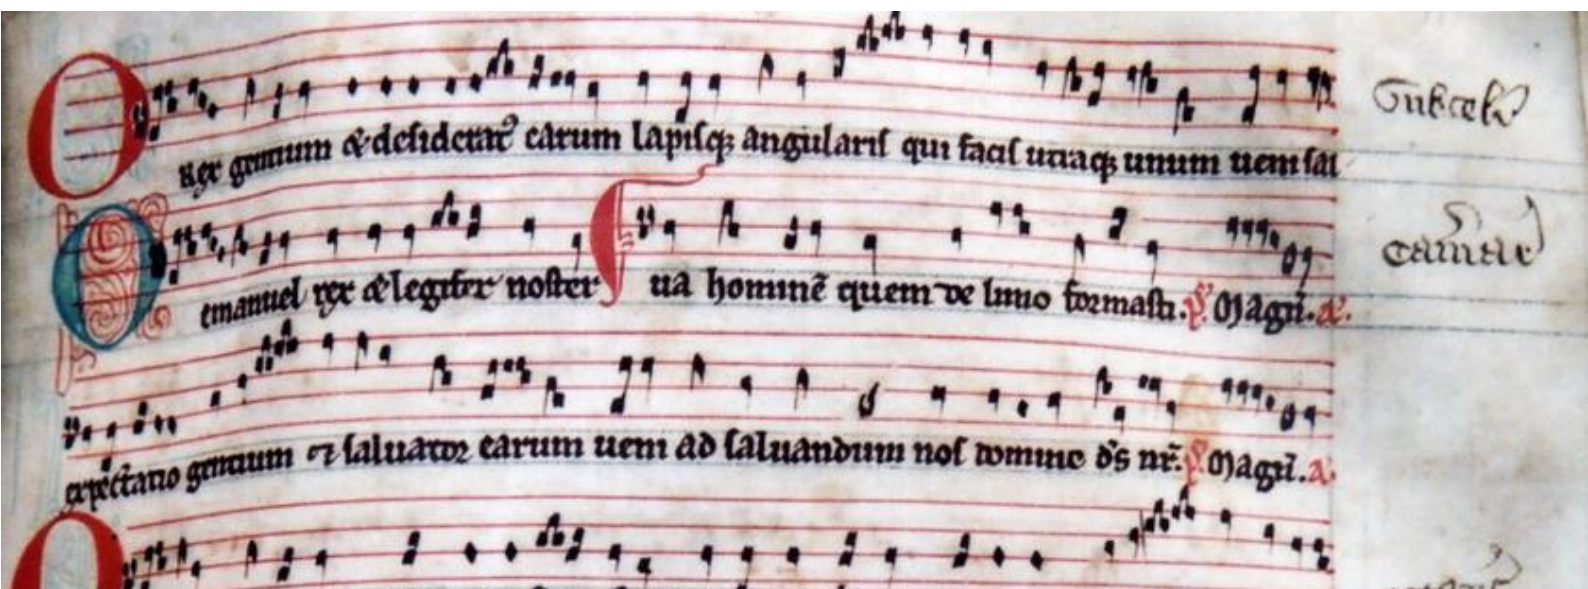 O Rex gentium & desiderat⁹ earum lapisq; angularis qui facis utraq; unum ueni sal
O emanuel rex & legifer noster ua hominē quem de limo formasti. P̄s. Magn̄. A.
expectatio gentium & saluator earum ueni ad saluandum nos domine d̄s nr̄. P̄s. Magn̄. A.
O